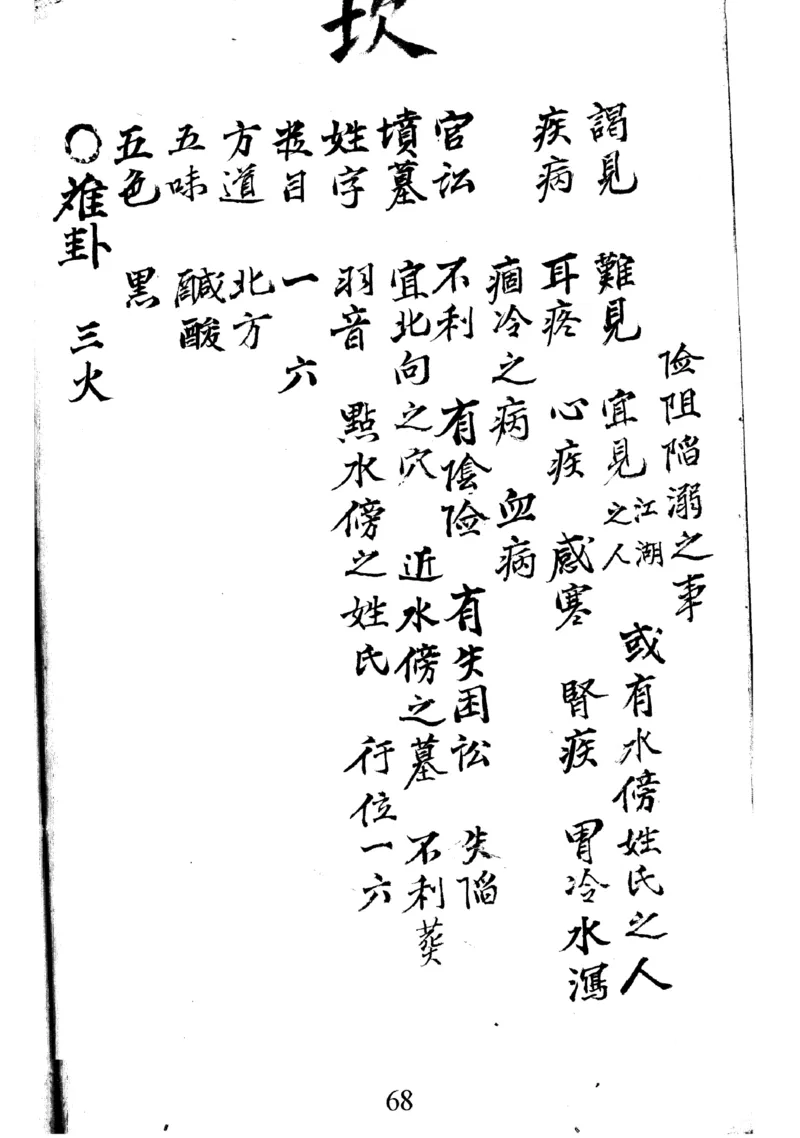 坎
險阻陷溺之事
謁見 難見 宜見江湖之人 或有水傍姓氏之人
疾病 耳疼 心疾 感寒 腎疾 胃冷水瀉
痼冷之病 血病
官訟 不利 有陰險 有失困訟 失陷
墳墓 宜北向之穴 近水傍之墓 不利葬
姓字 羽音 點水傍之姓氏 行位一六
數目 一 六
方道 北方
五味 鹹酸
五色 黑
〇离卦 三火
68